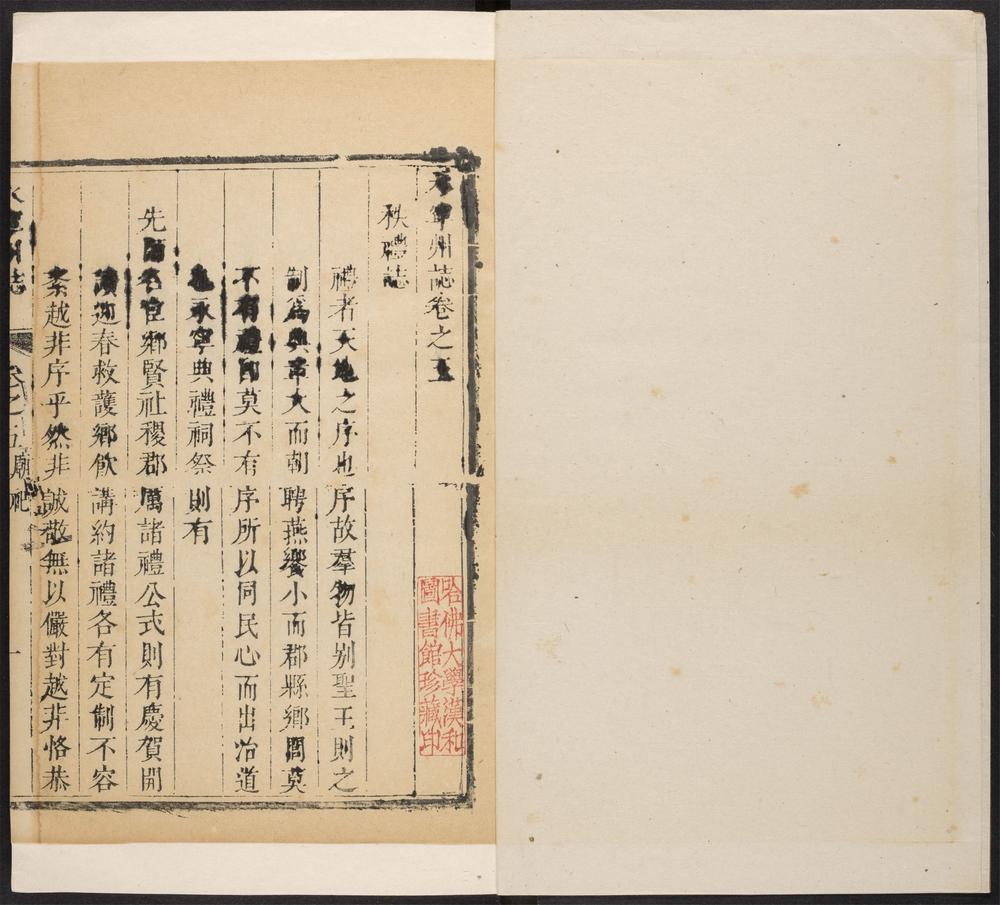 永寧州誌卷之五
秩禮誌
禮者天地之序也序故羣物皆别聖王則之
制爲典章大而朝聘燕饗小而郡縣鄉閭莫
不有禮卽莫不有序所以同民心而出治道
也永寧典禮祠祭則有
先師名宦鄉賢社稷郡厲諸禮公式則有慶賀開
讀迎春救護鄉飲講約諸禮各有定制不容
紊越非序乎然非誠敬無以儼對越非恪恭
永寧州誌
卷之五
廟祀
一
哈佛大學漢和
圖書館珍藏印